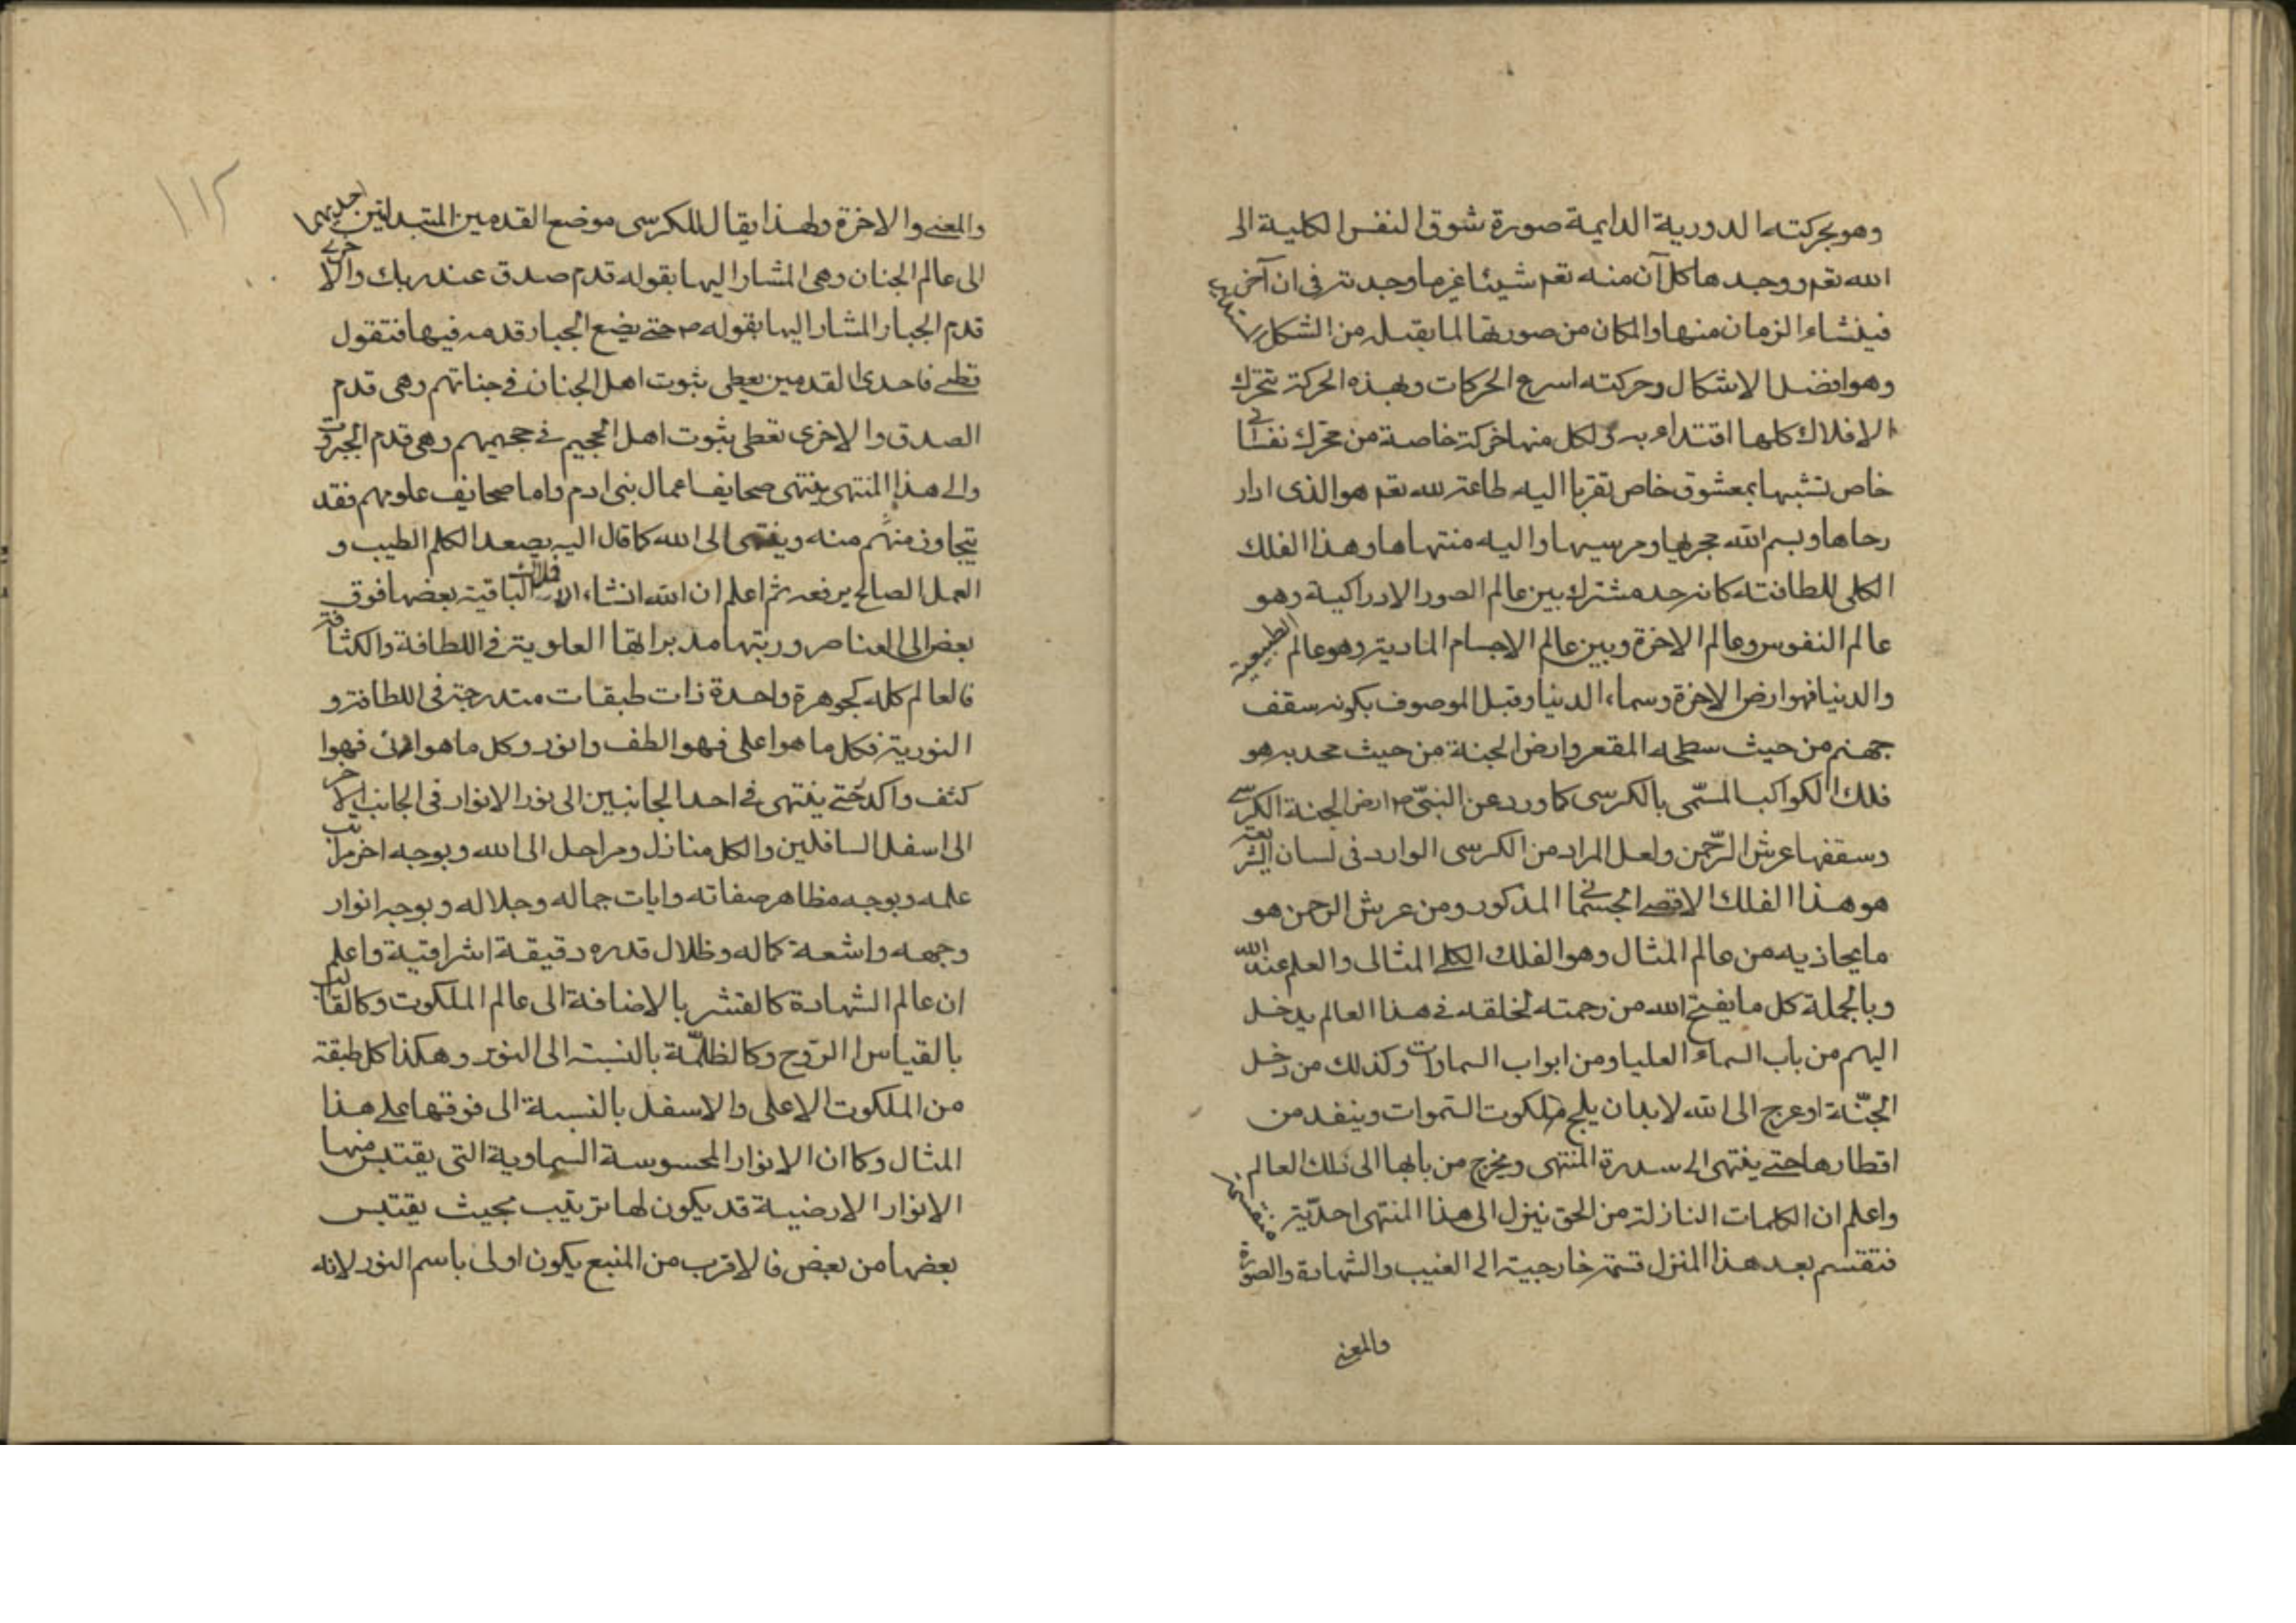 وهو بحركته الدورية الدايمة صورة شوق النفس الكلية الى
الله تعم ووجدها كل آن منه تعم شيئا غير ما وجدته فى ان آخر
فينشاء الزمان منها والمكان من صورتها لما يقبله من الشكل
وهو افضل الاشكال وحركته اسرع الحركات وبهذه الحركة تتحرك
الافلاك كلها اقتداء به ولكل منها حركة خاصة من محرك نفسانى
خاص تشبها بمعشوق خاص تقربا اليه طاعة لله تعم هو الذى ادار
رحاها وبسم الله مجريها ومرسيها واليه منتهاها وهذا الفلك
الكلى للطافته كانه حد مشترك بين عالم الصور الادراكية وهو
عالم النفوس وعالم الاخرة وبين عالم الاجسام المادية وهو عالم الطبيعة
والدنيا فهو ارض الاخرة وسماء الدنيا وقيل الموصوف بكونه سقف
جهنم من حيث سطحه المقعر وارض الجنة من حيث محدبه هو
فلك الكواكب المسمّى بالكرسى كما ورد عن النبىّ ص ارض الجنة الكرسى
وسقفها عرش الرّحمن ولعل المراد من الكرسى الوارد فى لسان الشريعة
هو هذا الفلك الاقصى الجسمانى المذكور ومن عرش الرحمن هو
ما يحاذيه من عالم المثال وهو الفلك الكلى المثالى والعلم عند الله
وبالجملة كل ما يفتح الله من رحمته لخلقه فى هذا العالم يدخل
اليهم من باب السماء العليا ومن ابواب السماوات وكذلك من دخل
الجنّة او عرج الى الله لا بد ان يلج ملكوت السّموات وينفد من
اقطارها حتى ينتهى الى سدرة المنتهى ويخرج من بابها الى ذلك العالم
واعلم ان الكلمات النازلة من الحق ينزل الى هذا المنتهى احديّة
فتقسم بعد هذا المنزل قسمة خارجية الى الغيب والشهادة والصورة
والمعنى
١١٢
والمعنى والاخرة ولهذا يقال للكرسى موضع القدمين المتبدلتين احديهما
الى عالم الجنان وهى المشار اليها بقوله قدم صدق عند ربك والاخرى
قدم الجبار المشار اليها بقوله ص حتى يضع الجبار قدمه فيها فتقول
قطى فاحدى القدمين يعطى ثبوت اهل الجنان فى جناتهم وهى قدم
الصدق والاخرى تعطى ثبوت اهل الجحيم فى جحيمهم وهى قدم الجبروت
والى هذا المنتهى ينتهى صحايف اعمال بنى ادم واما صحايف علومهم فقد
يتجاوز منهم منه وينتهى الى الله كما قال اليه يصعد الكلم الطيب و
العمل الصالح يرفعه ثم اعلم ان الله انشاء الافلاك الباقية بعضها فوق
بعض الى العناصر ورتبها مدبراتها العلوية فى اللطافة والكثافة
فالعالم كله كجوهرة واحدة ذات طبقات متدرجة فى اللطافة و
النورية فكل ما هو اعلى فهو الطف وانور وكل ما هو ادنى فهوا
كثف واكدر حتى ينتهى فى احد الجانبين الى نور الانوار فى الجانب الاخر
الى اسفل السافلين والكل منازل ومراحل الى الله وبوجه اخر مراتب
علمه وبوجه مظاهر صفاته وايات جماله وجلاله وبوجه انوار
وجهه واشعة كماله وظلال قدره دقيقة اشراقية واعلم
ان عالم الشهادة كالقشر بالاضافة الى عالم الملكوت وكالقالب
بالقياس الى الرّوح وكالظلمّة بالنسبة الى النور وهكذا كل طبقة
من الملكوت الاعلى والاسفل بالنسبة الى فوقها على هذا
المثال وكما ان الانوار المحسوسة السماوية التى يقتبس منها
الانوار الارضية قد يكون لها ترتيب بحيث يقتبس
بعضها من بعض فالاقرب من المنبع يكون اولى باسم النور لانه